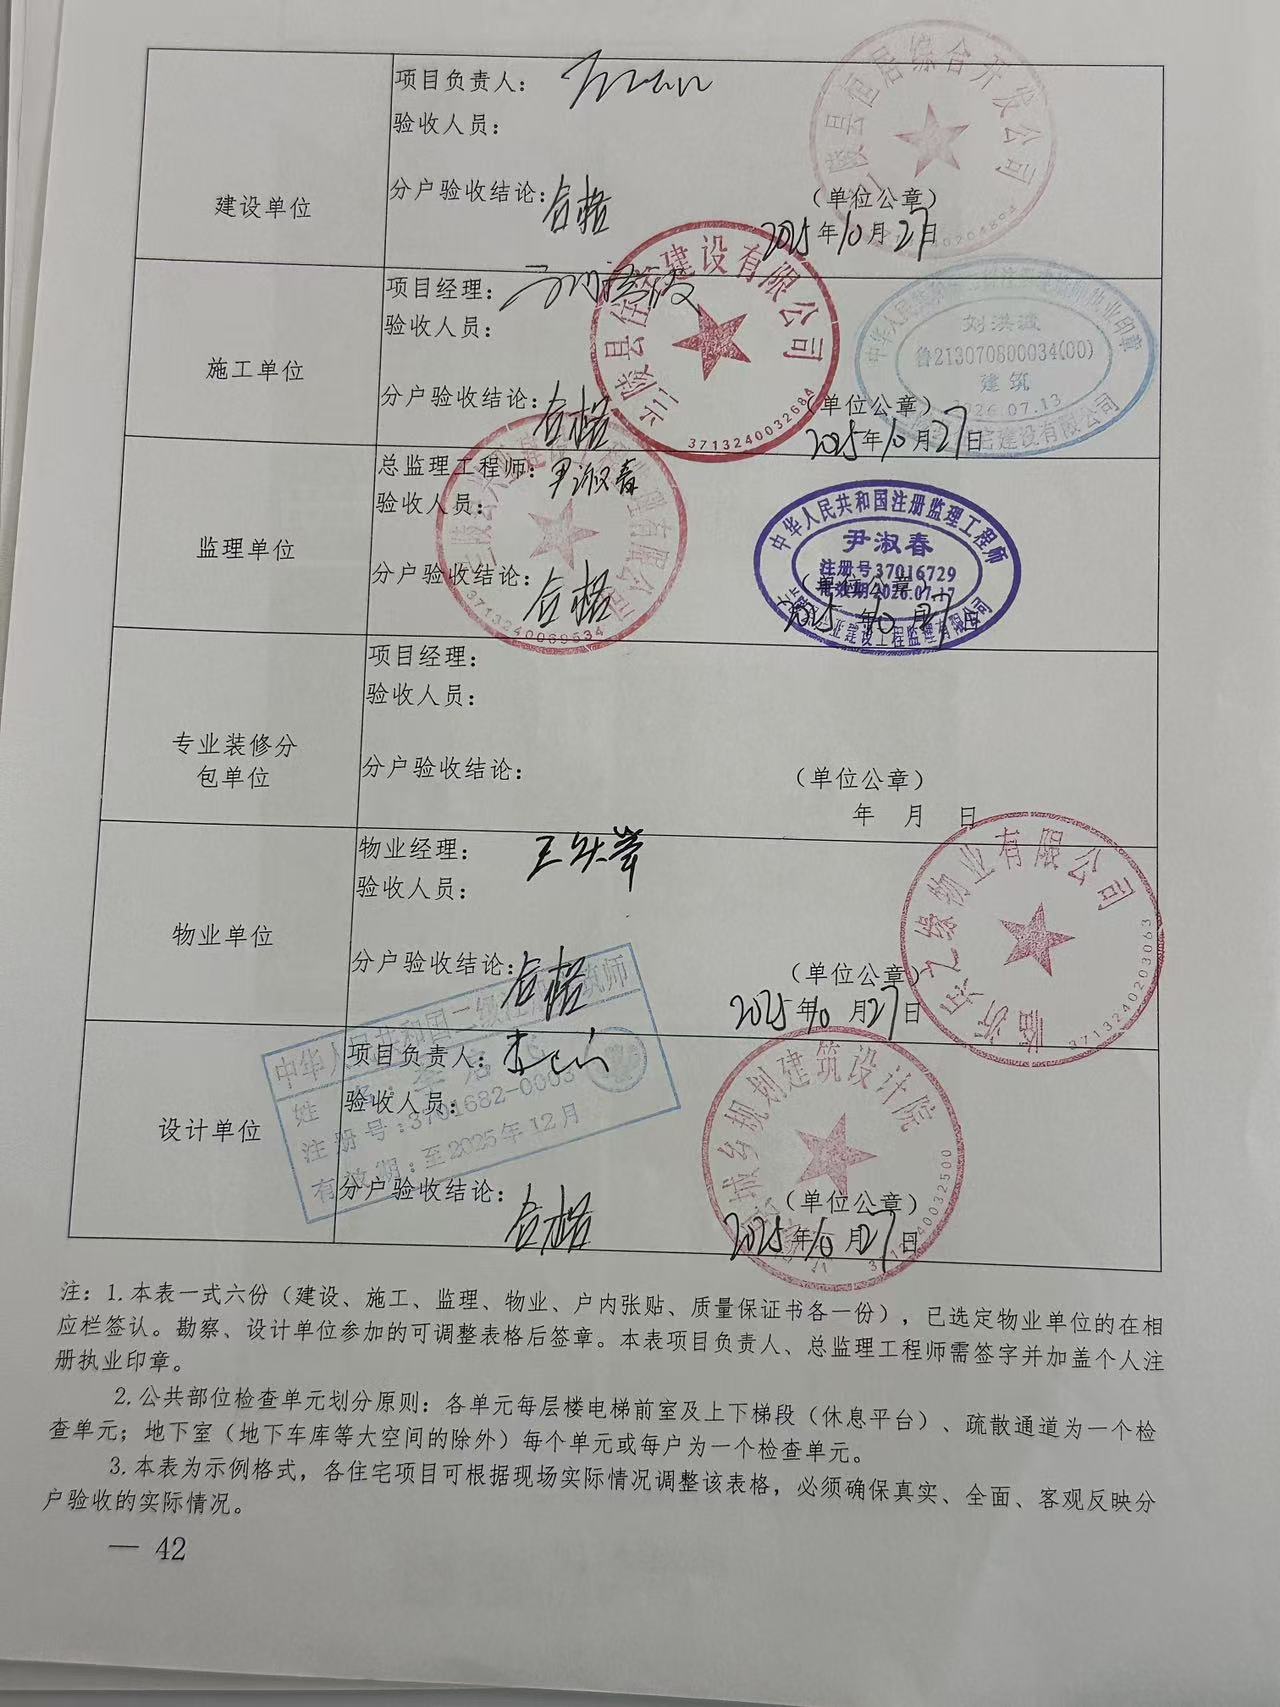 建设单位
项目负责人：
验收人员：
分户验收结论：合格
（单位公章）
2025年10月27日
县恒居综合开发公司
施工单位
项目经理：
验收人员：
分户验收结论：合格
（单位公章）
2025年10月27日
兰陵县住安建设有限公司
3713240032684
刘洪波
鲁213070800034(00)
建筑
2026.07.13
监理单位
总监理工程师：尹淑春
验收人员：
分户验收结论：合格
（单位公章）
2025年10月27日
3713240069534
中华人民共和国注册监理工程师
尹淑春
注册号37016729
有效期2026.07.17
专业装修分
包单位
项目经理：
验收人员：
分户验收结论：
（单位公章）
年 月 日
物业单位
物业经理：
验收人员：
分户验收结论：合格
（单位公章）
2025年10月27日
临沂兴之缘物业有限公司
3713240203063
设计单位
项目负责人：
验收人员：
分户验收结论：合格
（单位公章）
2025年10月27日
城乡规划建筑设计院
中华人民共和国二级注册建筑师
姓名：
注册号：3701682-0003
有效期：至2025年12月
注：1.本表一式六份（建设、施工、监理、物业、户内张贴、质量保证书各一份），已选定物业单位的在相
应栏签认。勘察、设计单位参加的可调整表格后签章。本表项目负责人、总监理工程师需签字并加盖个人注
册执业印章。
2.公共部位检查单元划分原则：各单元每层楼电梯前室及上下梯段（休息平台）、疏散通道为一个检
查单元；地下室（地下车库等大空间的除外）每个单元或每户为一个检查单元。
3.本表为示例格式，各住宅项目可根据现场实际情况调整该表格，必须确保真实、全面、客观反映分
户验收的实际情况。
— 42